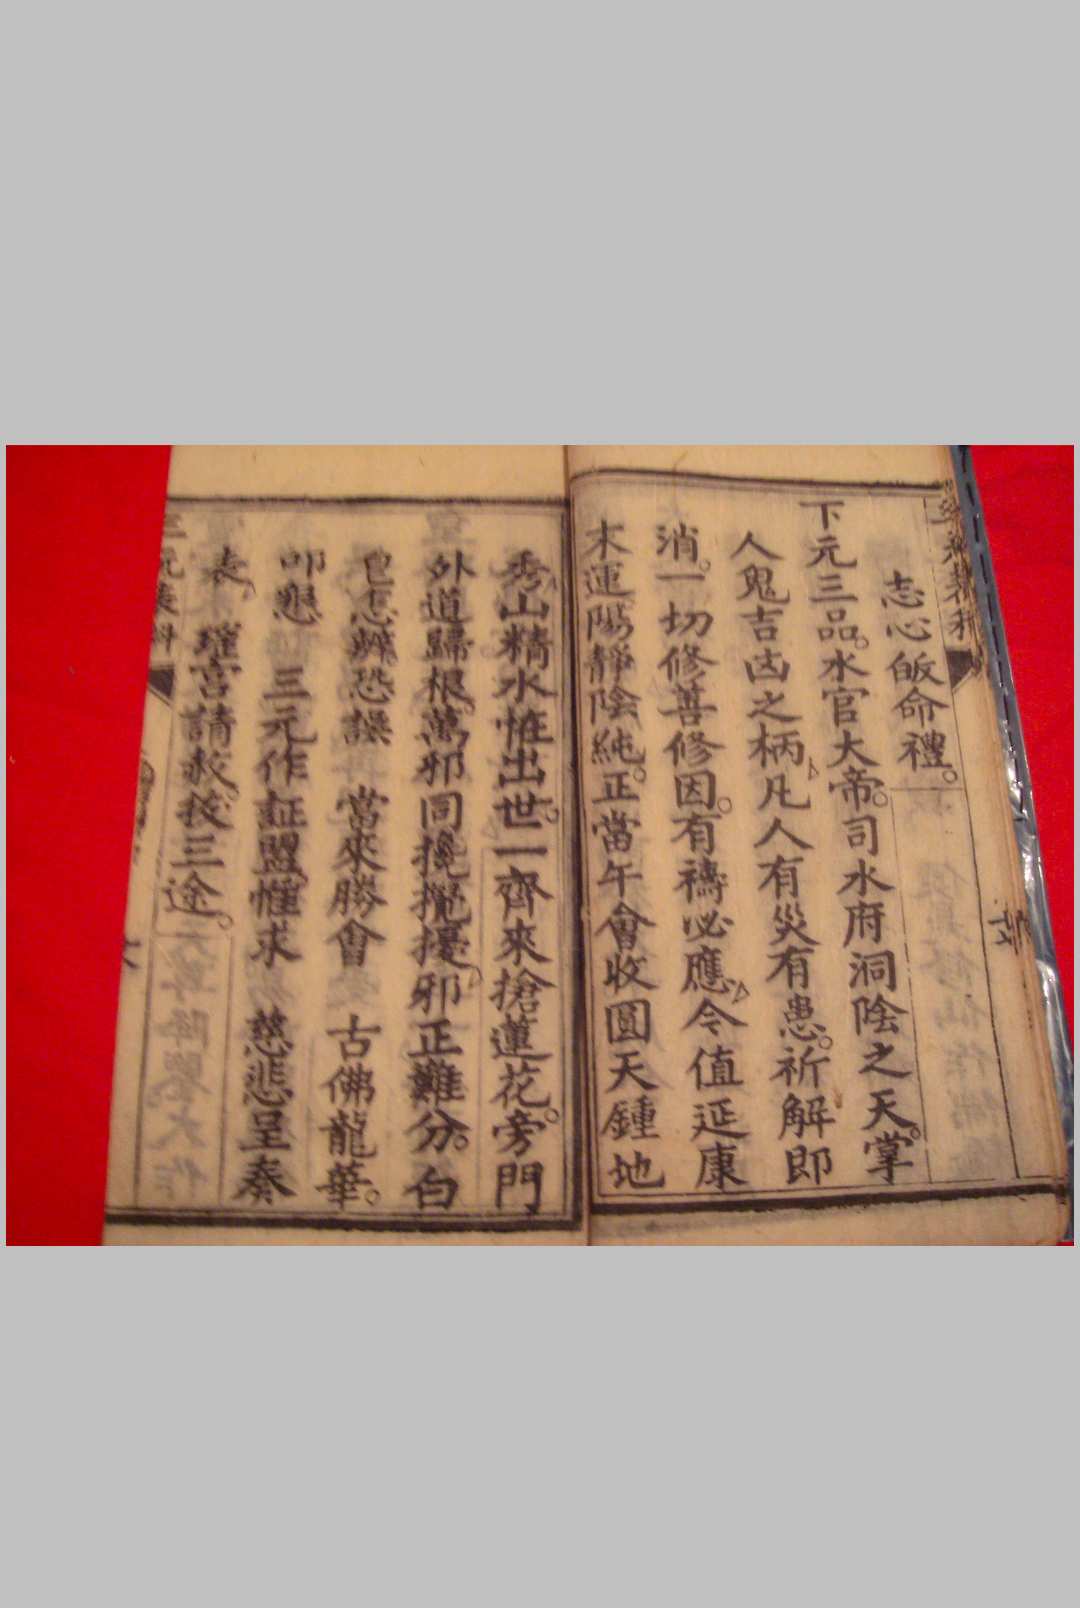 志心皈命禮。
下元三品。水官大帝。司水府洞陰之天。掌
人鬼吉凶之柄凡人有災有患。祈解即
消。一切修善修因。有禱必應令值延康
末運陽靜陰純。正當午會收圓天鍾地
秀山精水惟出世。一齊來搶蓮花。旁門
外道歸根。萬邪同攪擾邪正難分。白
怎辦。恐誤 當來勝會 古佛龍華。
叩懇 三元作証盟惟求 慈悲呈奏
表 瓊宮請救援三途。
三元表科